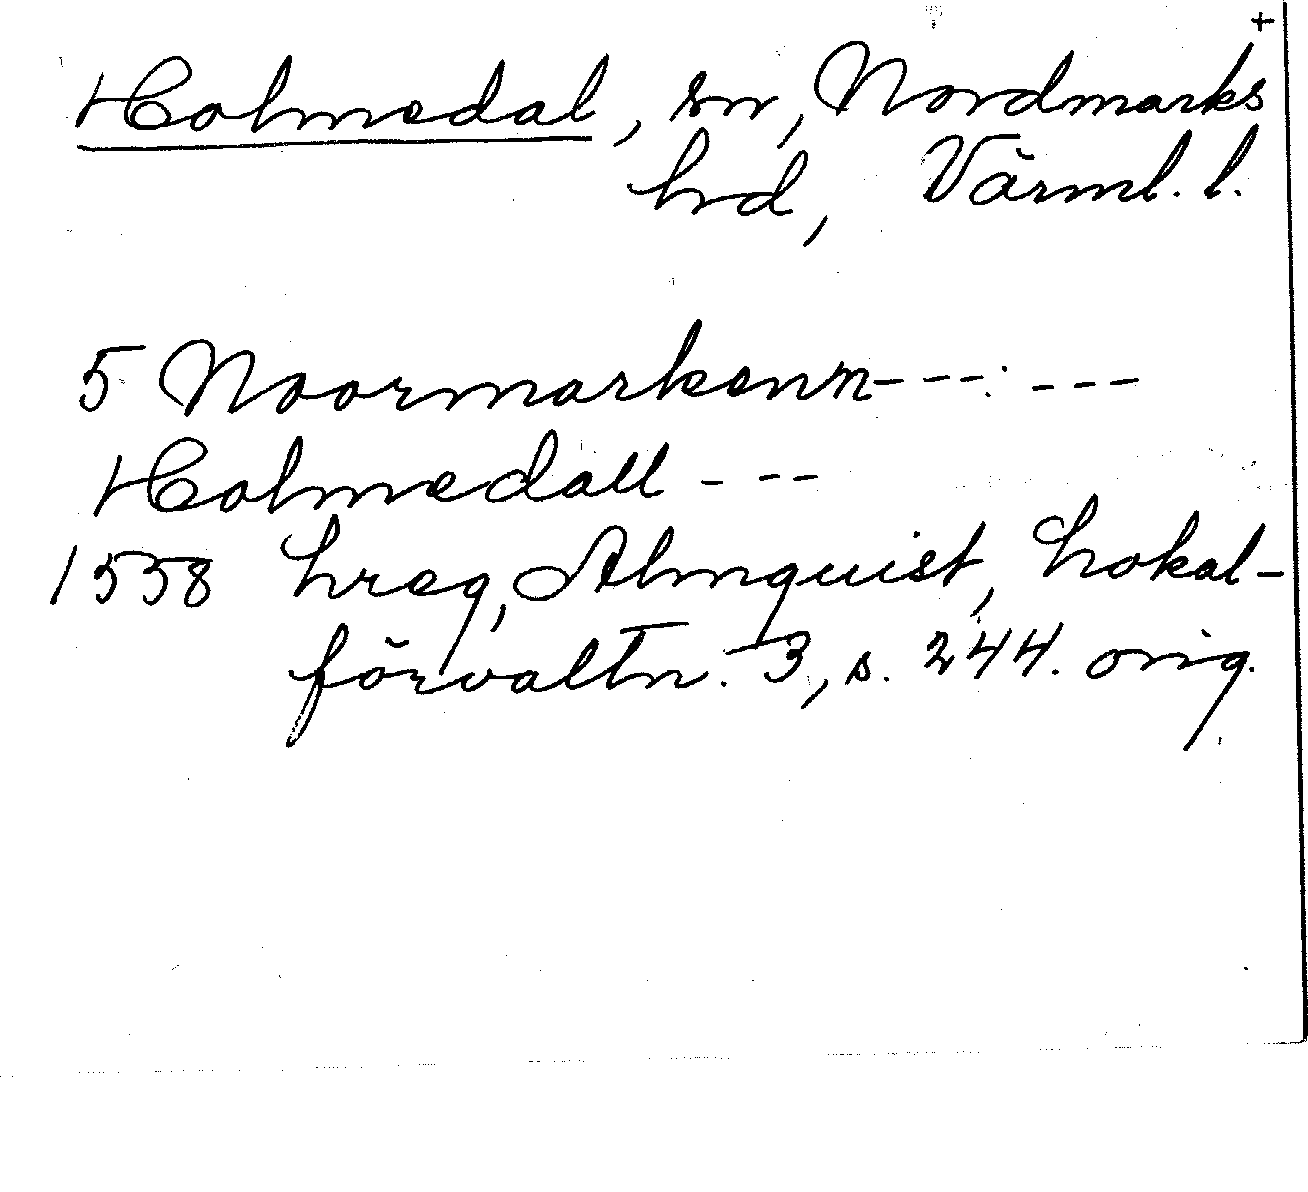 +
Holmedal, sn, Nordmarks
hd, Värml. l.
5 Noormarkenn---: ---
Holmedall - --
1558 hreg, Almquist, Lokal-
förvaltn. 3, s. 244. orig.